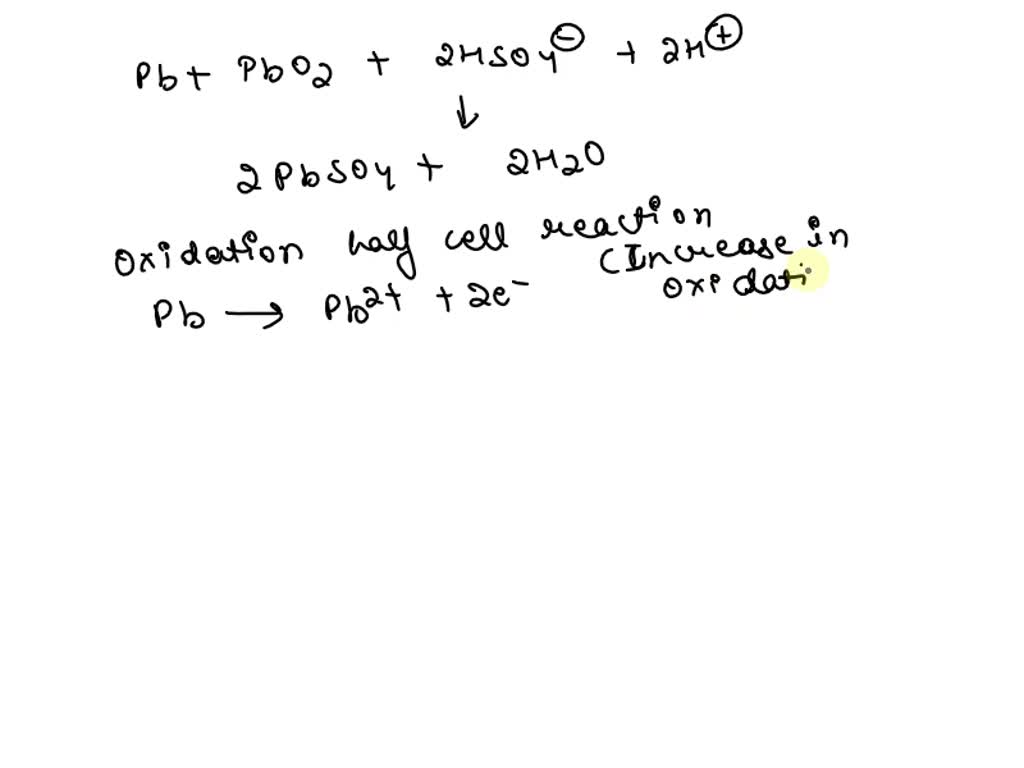 Pb + PbO2 + 2HSO4⊖ + 2H⊕
↓
2PbSO4 + 2H2O
Oxidation half cell reaction
(Increase in
Pb → Pb²⁺ + 2e⁻
oxidati